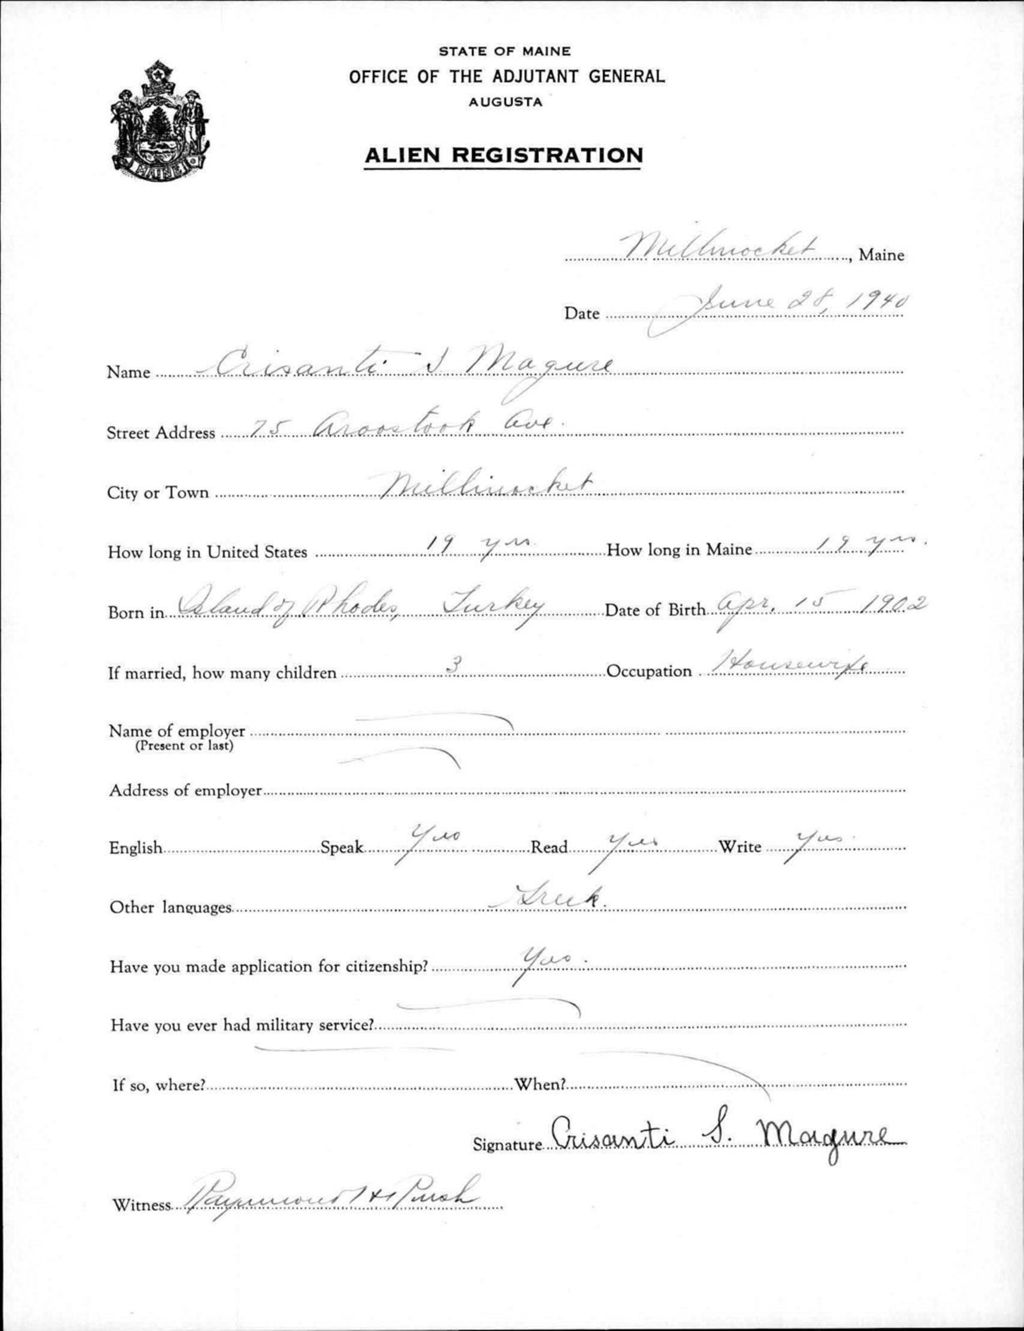 STATE OF MAINE
OFFICE OF THE ADJUTANT GENERAL
AUGUSTA
ALIEN REGISTRATION
MAINE
Millinocket, Maine
Date June 28, 1940
Name Crisanti S Magure
Street Address 75 Aroostook Ave.
City or Town Millinocket
How long in United States 19 yrs. How long in Maine 19 yrs.
Born in Island of Rhodes, Turkey Date of Birth Apr. 15 1902
If married, how many children 3 Occupation Housewife
Name of employer
(Present or last)
Address of employer
English Speak Yes Read Yes Write Yes
Other languages Greek.
Have you made application for citizenship? Yes.
Have you ever had military service?
If so, where? When?
Signature Crisanti S. Magure
Witness Raymond H